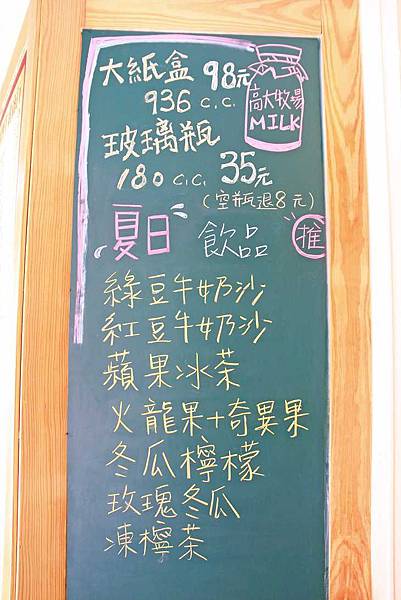 大紙盒 98元
936 c.c.
高大牧場
MILK
玻璃瓶
180 c.c. 35元
(空瓶退8元)
夏日 飲品 推
綠豆牛奶沙
紅豆牛奶沙
蘋果冰茶
火龍果+奇異果
冬瓜檸檬
玫瑰冬瓜
凍檸茶